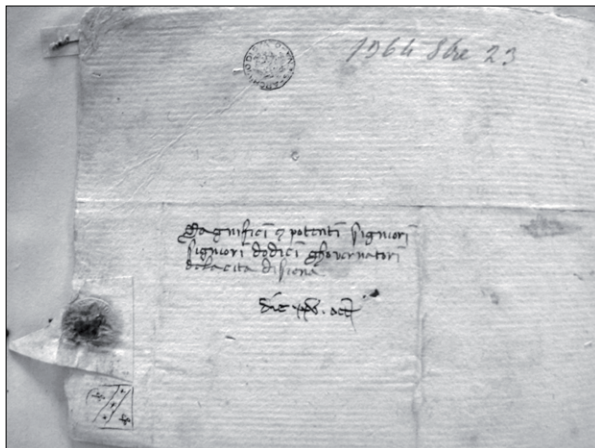 1364 8bre 23
Magnifici & potenti signiori
signiori dodici ghovernatori
dela cita di siena
die xxv. oct